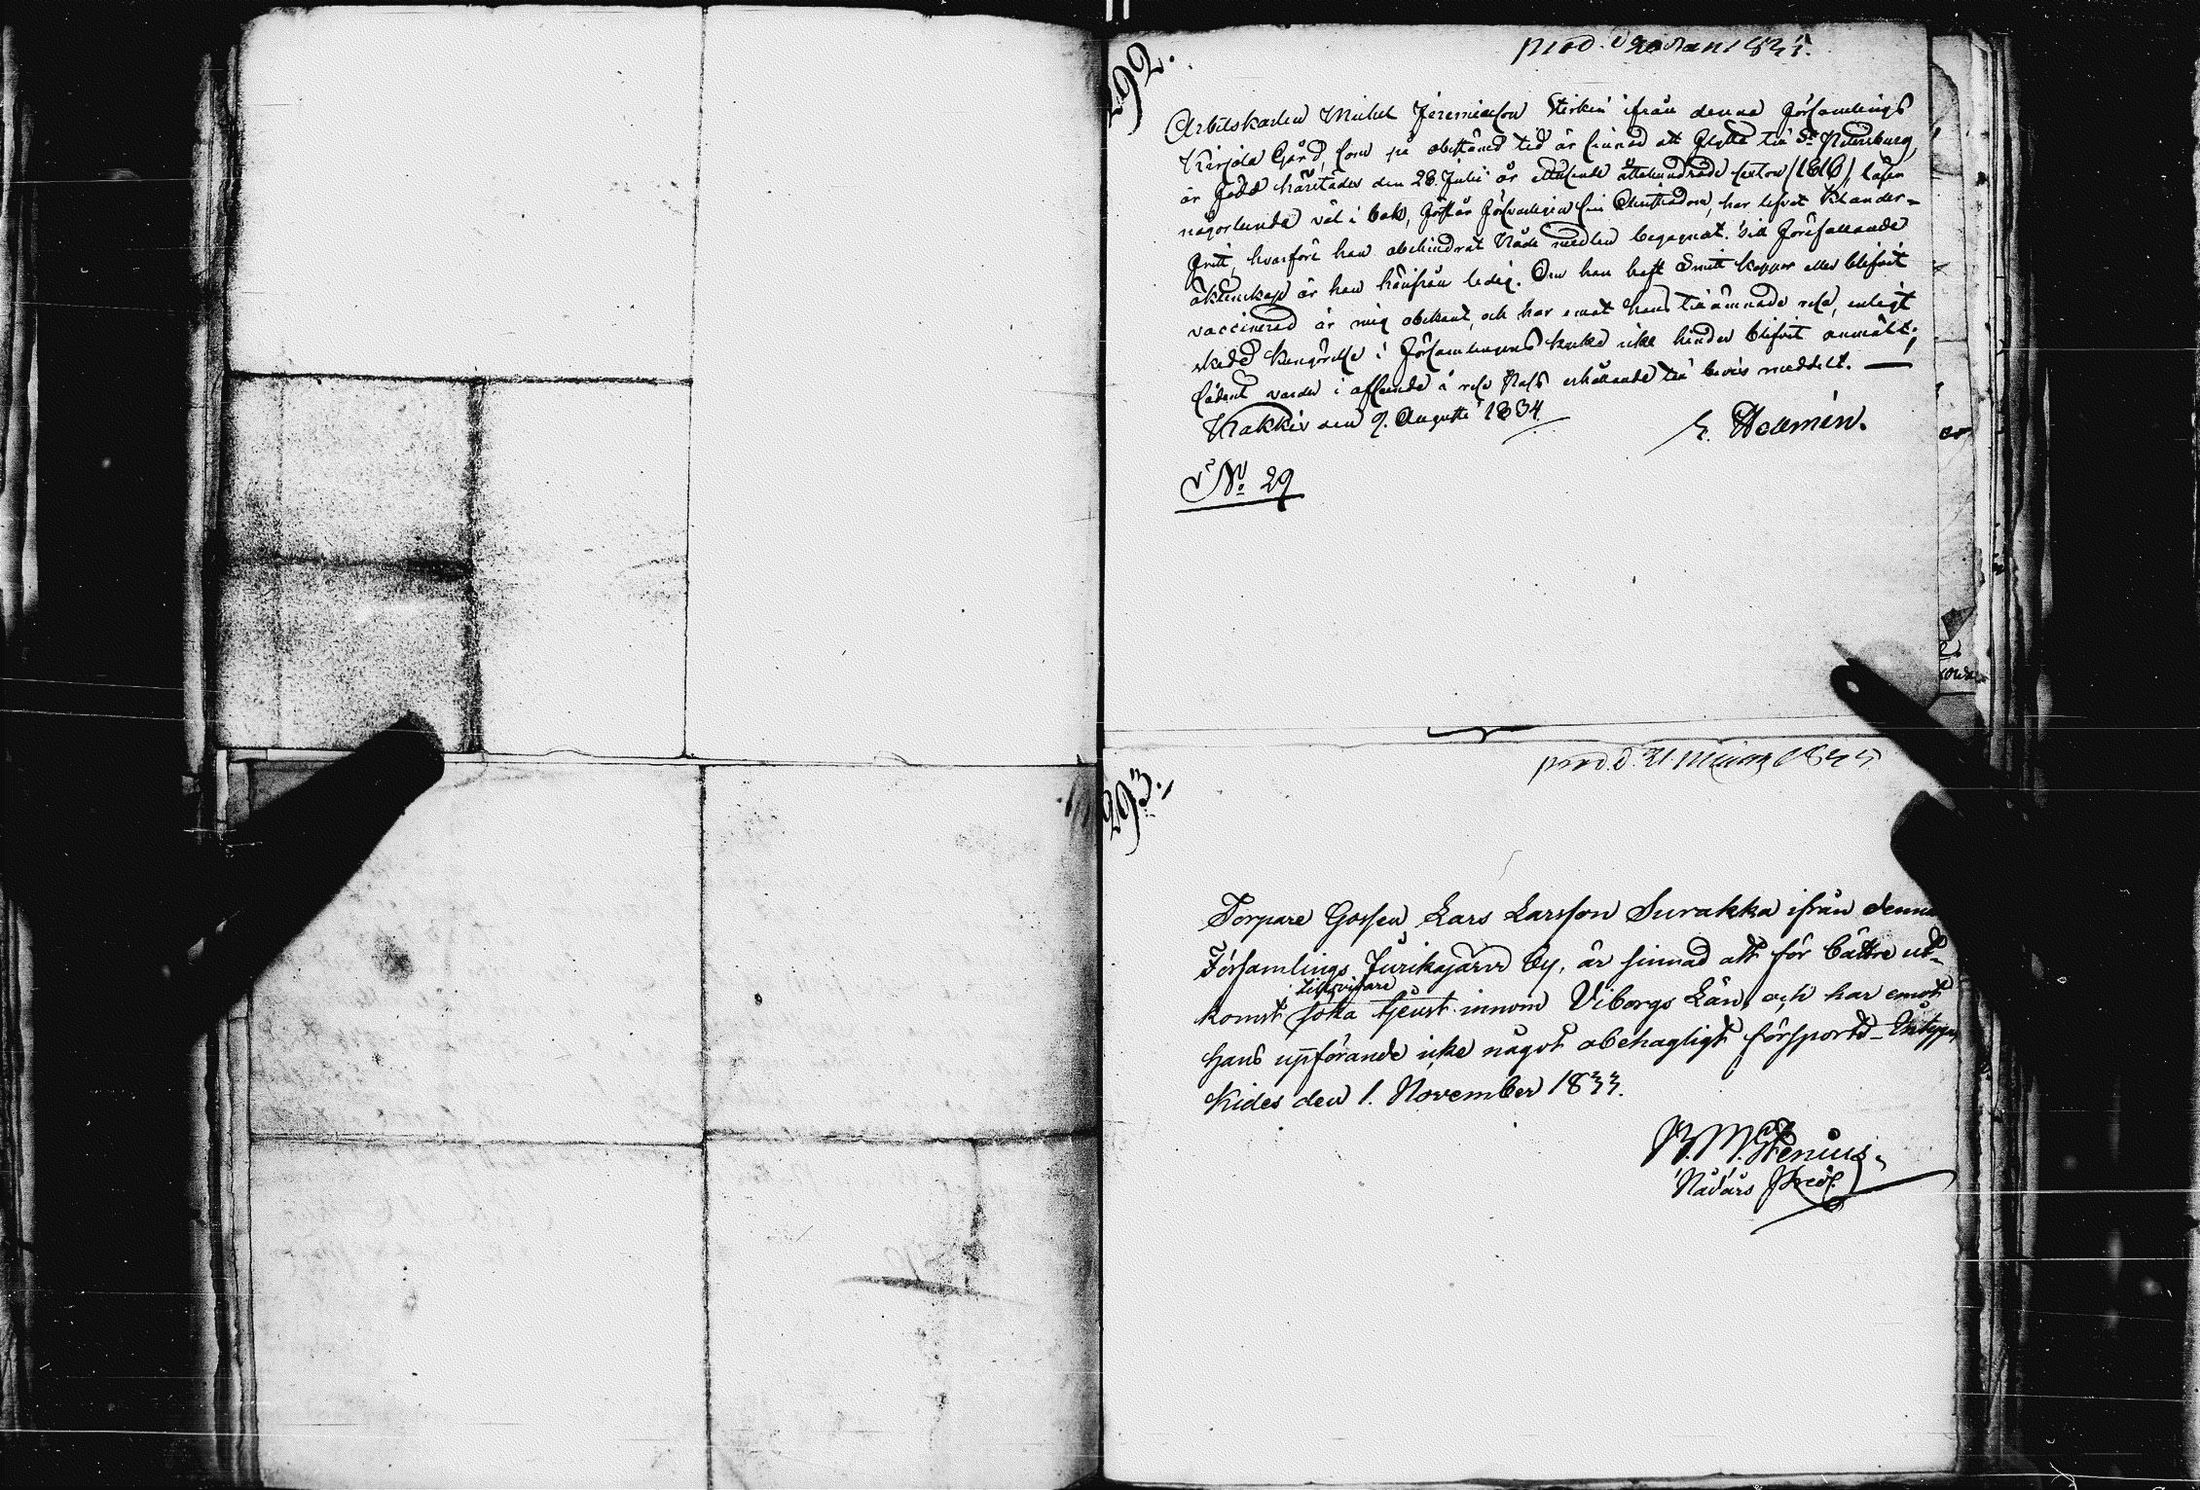 292.
prod. d 20 Jan 1835.
Arbetskarlen Michel Jeremiæson Sterkin ifrån denna Församlings
Kirjola Gård, som på obestämd tid är sinnad att flytta till St Petersburg,
är född härstädes den 28. Julii år ettusende åttahundrade sexton (1816), läser
någorlunda väl i bok, förstår försvarligen sin Christendom, har lefvat klander-
fritt, hvarföre han obehindrat Nåde medlen begagnat. Till förefallande
äktenskap är han härifrån ledig. Om han haft Smitt koppor eller blifvit
vaccinerad är mig obekant, och har emot hans tillämnade resa, enligt
skedd kungörelse i Församlingens kyrka icke hinder blifvit anmält;
sådant varder i afseende å rese Pass erhållande till bevis meddelt. —
Krakkis den 9. Augusti 1834.
E. Hedmin.
No. 29
293.
prod. d. 21 Mars 1835
Torpare Gossen Lars Larsson Surakka ifrån denna
Församlings Jurikajärvi By, är sinnad att för bättre ut-
tillsvidare
komst söka tjenst innom Viborgs Län, och har emot
hans uppförande icke något obehagligt försports – Intygar
Kides den 1. November 1833.
Stenius.
Nådårs Pred.